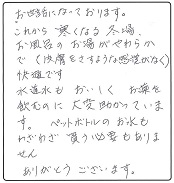 お世話になっております。
これから 寒くなる 冬場、
お風呂の お湯がやわらか
で (皮膚をさすような感覚がなく)
快適です
水道水も おいしく お薬を
飲むのに 大変助かっていま
す。 ペットボトルのお水も
わざわざ 買う必要もありま
せん
ありがとう ございます。